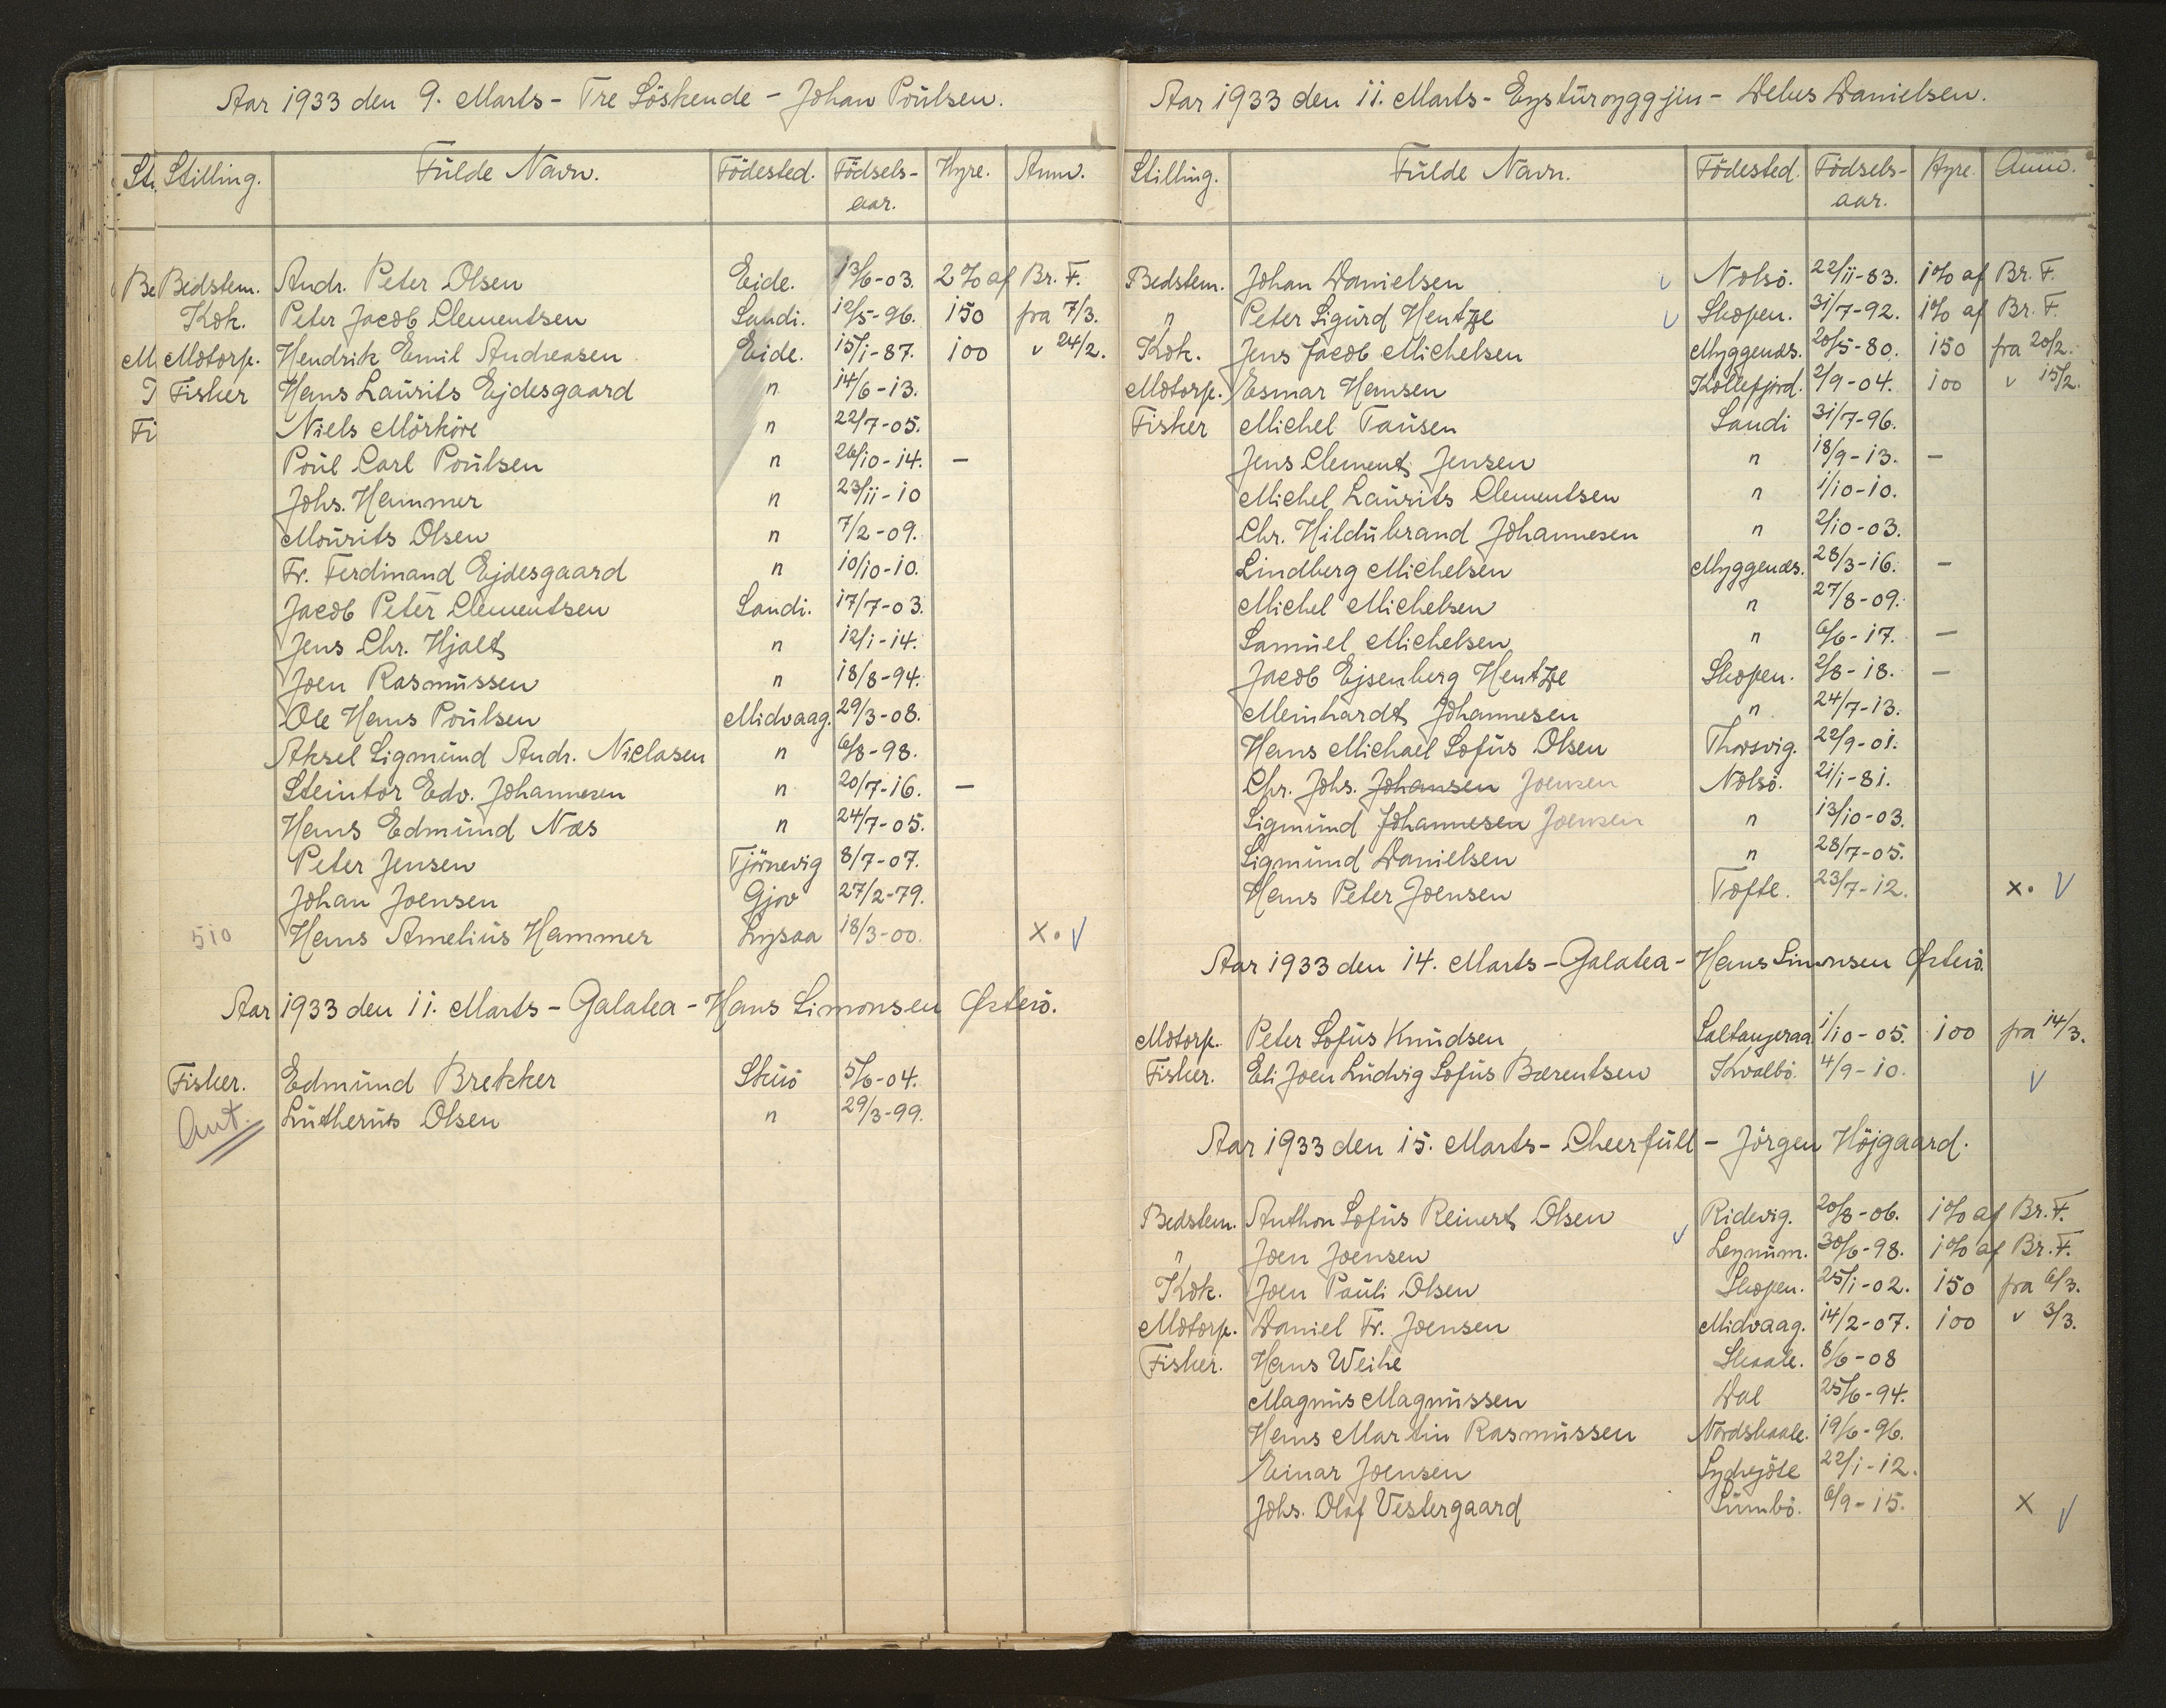 Aar 1933 den 9. Marts - Tre Söskende - Johan Poulsen.
St. Stilling. Fulde Navn. Födested. Födsels- Hyre. Anm.
aar.
Be Bedstem. Andr. Peter Olsen Eide. 13/6-03. 2% af Br. F.
Kok. Peter Jacob Clementsen Sandi. 12/5-96. 150 fra 7/3.
M Motorp. Hendrik Emil Andreasen Eide. 15/1-87. 100 v 24/2.
Fisher Hans Laurits Ejdesgaard n 14/6-13.
Fi Niels Mörköre n 22/7-05.
Poul Carl Poulsen n 26/10-14. -
Johs. Hammer n 23/11-10
Mourits Olsen n 7/2-09.
Fr. Ferdinand Ejdesgaard n 10/10-10.
Jacob Peter Clementsen Sandi. 17/7-03.
Jens Chr. Hjalt n 12/1-14.
Joen Rasmussen n 18/8-94.
Ole Hans Poulsen Midvaag. 29/3-08.
Aksel Sigmund Andr. Niclasen n 6/8-98.
Steintor Edv. Johannesen n 20/7-16. -
Hans Edmund Næs n 24/7-05.
Peter Jensen Tjörnevig 8/7-07.
Johan Joensen Gjov 27/2-79.
510 Hans Amelius Hammer Lysaa 18/3-00. x.
Aar 1933 den 11. Marts - Galatea - Hans Simonsen Österö.
Fisher. Edmund Brekker Skuö 5/6-04.
Ant. Lutherus Olsen n 29/3-99.
Aar 1933 den 11. Marts - Eysturoyggjin - Debes Danielsen.
Stilling. Fulde Navn. Födested. Födsels- Hyre. Anm.
aar.
Bedstem. Johan Danielsen Nolsö. 22/11-83. 1% af Br. F.
n Peter Sigurd Hentze Skopen. 31/7-92. 1% af Br. F.
Kok. Jens Jacob Michelsen Myggenæs. 20/5-80. 150 fra 20/2.
Motorp. Esmar Hansen Kollefjord. 2/9-04. 100 v 15/2.
Fisker Michel Tausen Sandi 31/7-96.
Jens Clement Jensen n 18/9-13. -
Michel Laurits Clementsen n 1/10-10.
Chr. Hildubrand Johannesen n 2/10-03.
Lindberg Michelsen Myggenæs. 28/3-16. -
Michel Michelsen n 27/8-09.
Samuel Michelsen n 6/6-17. -
Jacob Ejsenberg Hentze Skopen. 2/8-18. -
Meinhardt Johannesen n 24/7-13.
Hans Michael Sofus Olsen Thorsvig. 22/9-01.
Chr. Johs. Johansen Joensen Nolsö. 21/1-81.
Sigmund Johannesen Joensen n 13/10-03.
Sigmund Danielsen n 28/7-05.
Hans Peter Joensen Tofte. 23/7-12. x.
Aar 1933 den 14. Marts - Galatea - Hans Simonsen Österö.
Motorp. Peter Sofus Knudsen Saltangeraa 1/10-05. 100 fra 14/3.
Fisker. Eli Joen Ludvig Sofus Bærentsen Kvalbö. 4/9-10.
Aar 1933 den 15. Marts - Cheerfull - Jörgen Höjgaard.
Bedstem. Anthon Sofus Reinert Olsen Ridevig. 20/8-06. 1% af Br. F.
" Joen Joensen Leynum. 30/6-98. 1% af Br. F.
Kok. Joen Pauli Olsen Skopen. 25/1-02. 150 fra 6/3.
Motorp. Daniel Fr. Joensen Midvaag. 14/2-07. 100 v 3/3.
Fisker. Hans Weihe Skaale. 8/6-08
Magnus Magnussen Dal 25/6-94.
Hans Martin Rasmussen Nordskaale. 19/6-96.
Einar Joensen Sydregöte 22/1-12.
Johs. Olaf Vestergaard Sumbö. 6/9-15. x